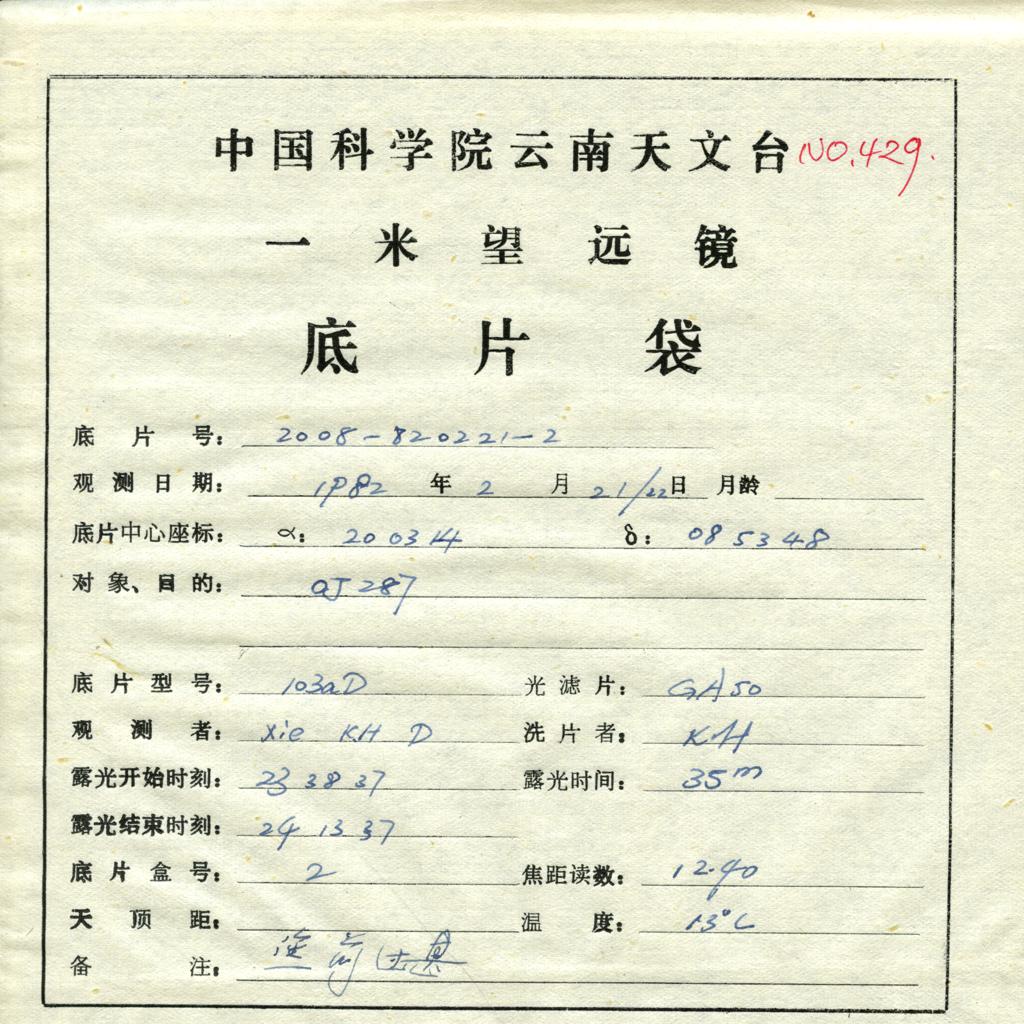 中国科学院云南天文台 NO.429.
一米望远镜
底片袋
底片号: 2008-820221-2
观测日期: 1982 年 2 月 21/22 日 月龄
底片中心座标: α: 20 03 14 δ: 08 53 48
对象、目的: OJ 287
底片型号: 103aD 光滤片: GA50
观测者: Xie KH D 洗片者: KH
露光开始时刻: 23 38 37 露光时间: 35m
露光结束时刻: 24 13 37
底片盒号: 2 焦距读数: 12.40
天顶距: 温度: 13°C
备注: